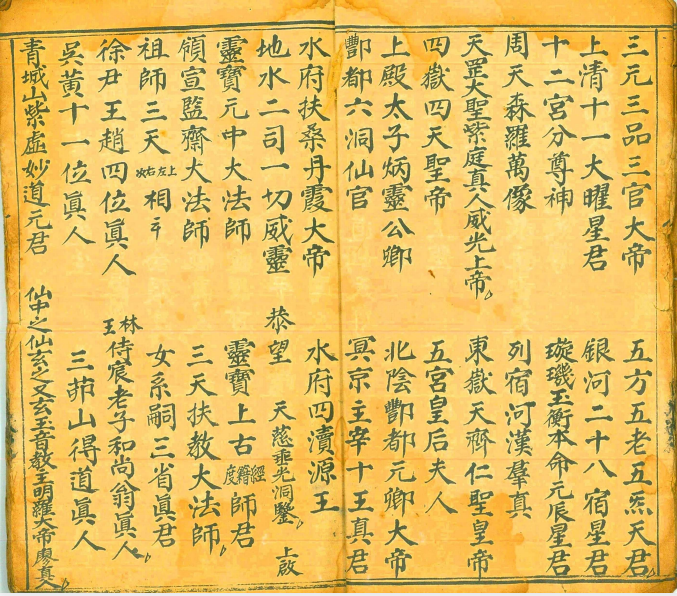 三元三品三官大帝　五方五老五炁天君
上清十一大曜星君　銀河二十八宿星君
十二宮分尊神　璇璣玉衡本命元辰星君
周天森羅萬像　列宿河漢羣真
天罡大聖紫庭真人威光上帝　東嶽天齊仁聖皇帝
四嶽四天聖帝　五宮皇后夫人
上殿太子炳靈公卿　北陰酆都元卿大帝
酆都六洞仙官　冥京主宰十王真君
水府扶桑丹霞大帝　水府四瀆源王
地水二司一切威靈　恭望　天慈垂光洞鑒　上啟
靈寶元中大法師　靈寶上古經籍度師君
領宣監齋大法師　三天扶教大法師
祖師三天上左右次相　女系嗣三省眞君
徐尹王趙四位眞人　林王侍宸老子和尚翁眞人
吳黃十一位眞人　三茆山得道眞人
青城山紫虛妙道元君　仙中之仙玄之又玄玉音教主明羅大帝廖真人